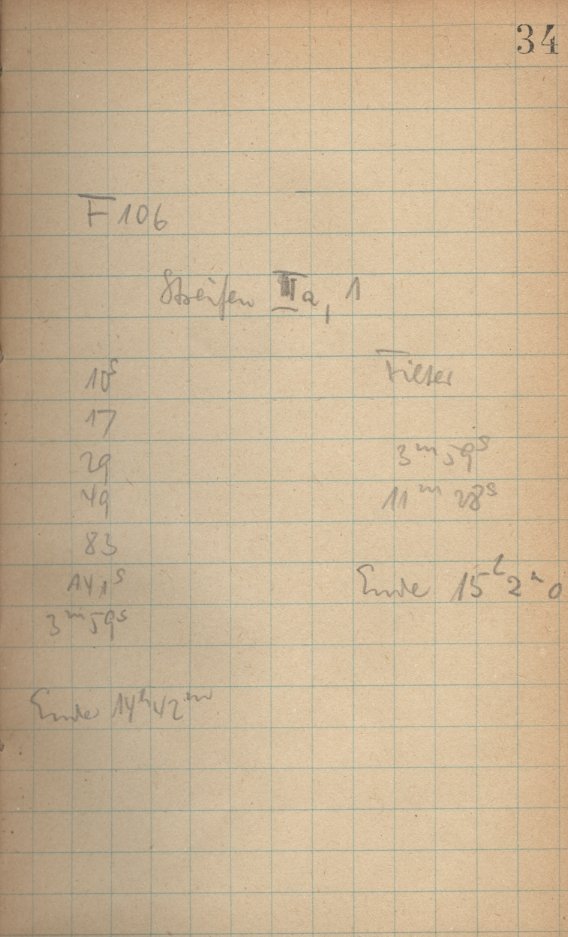 34
F 106
Streifen IIIa, 1
10s
17
29
49
83
141s
3m 59s
Ende 14h 42m
Filter
3m 59s
11m 28s
Ende 15h 2m 0